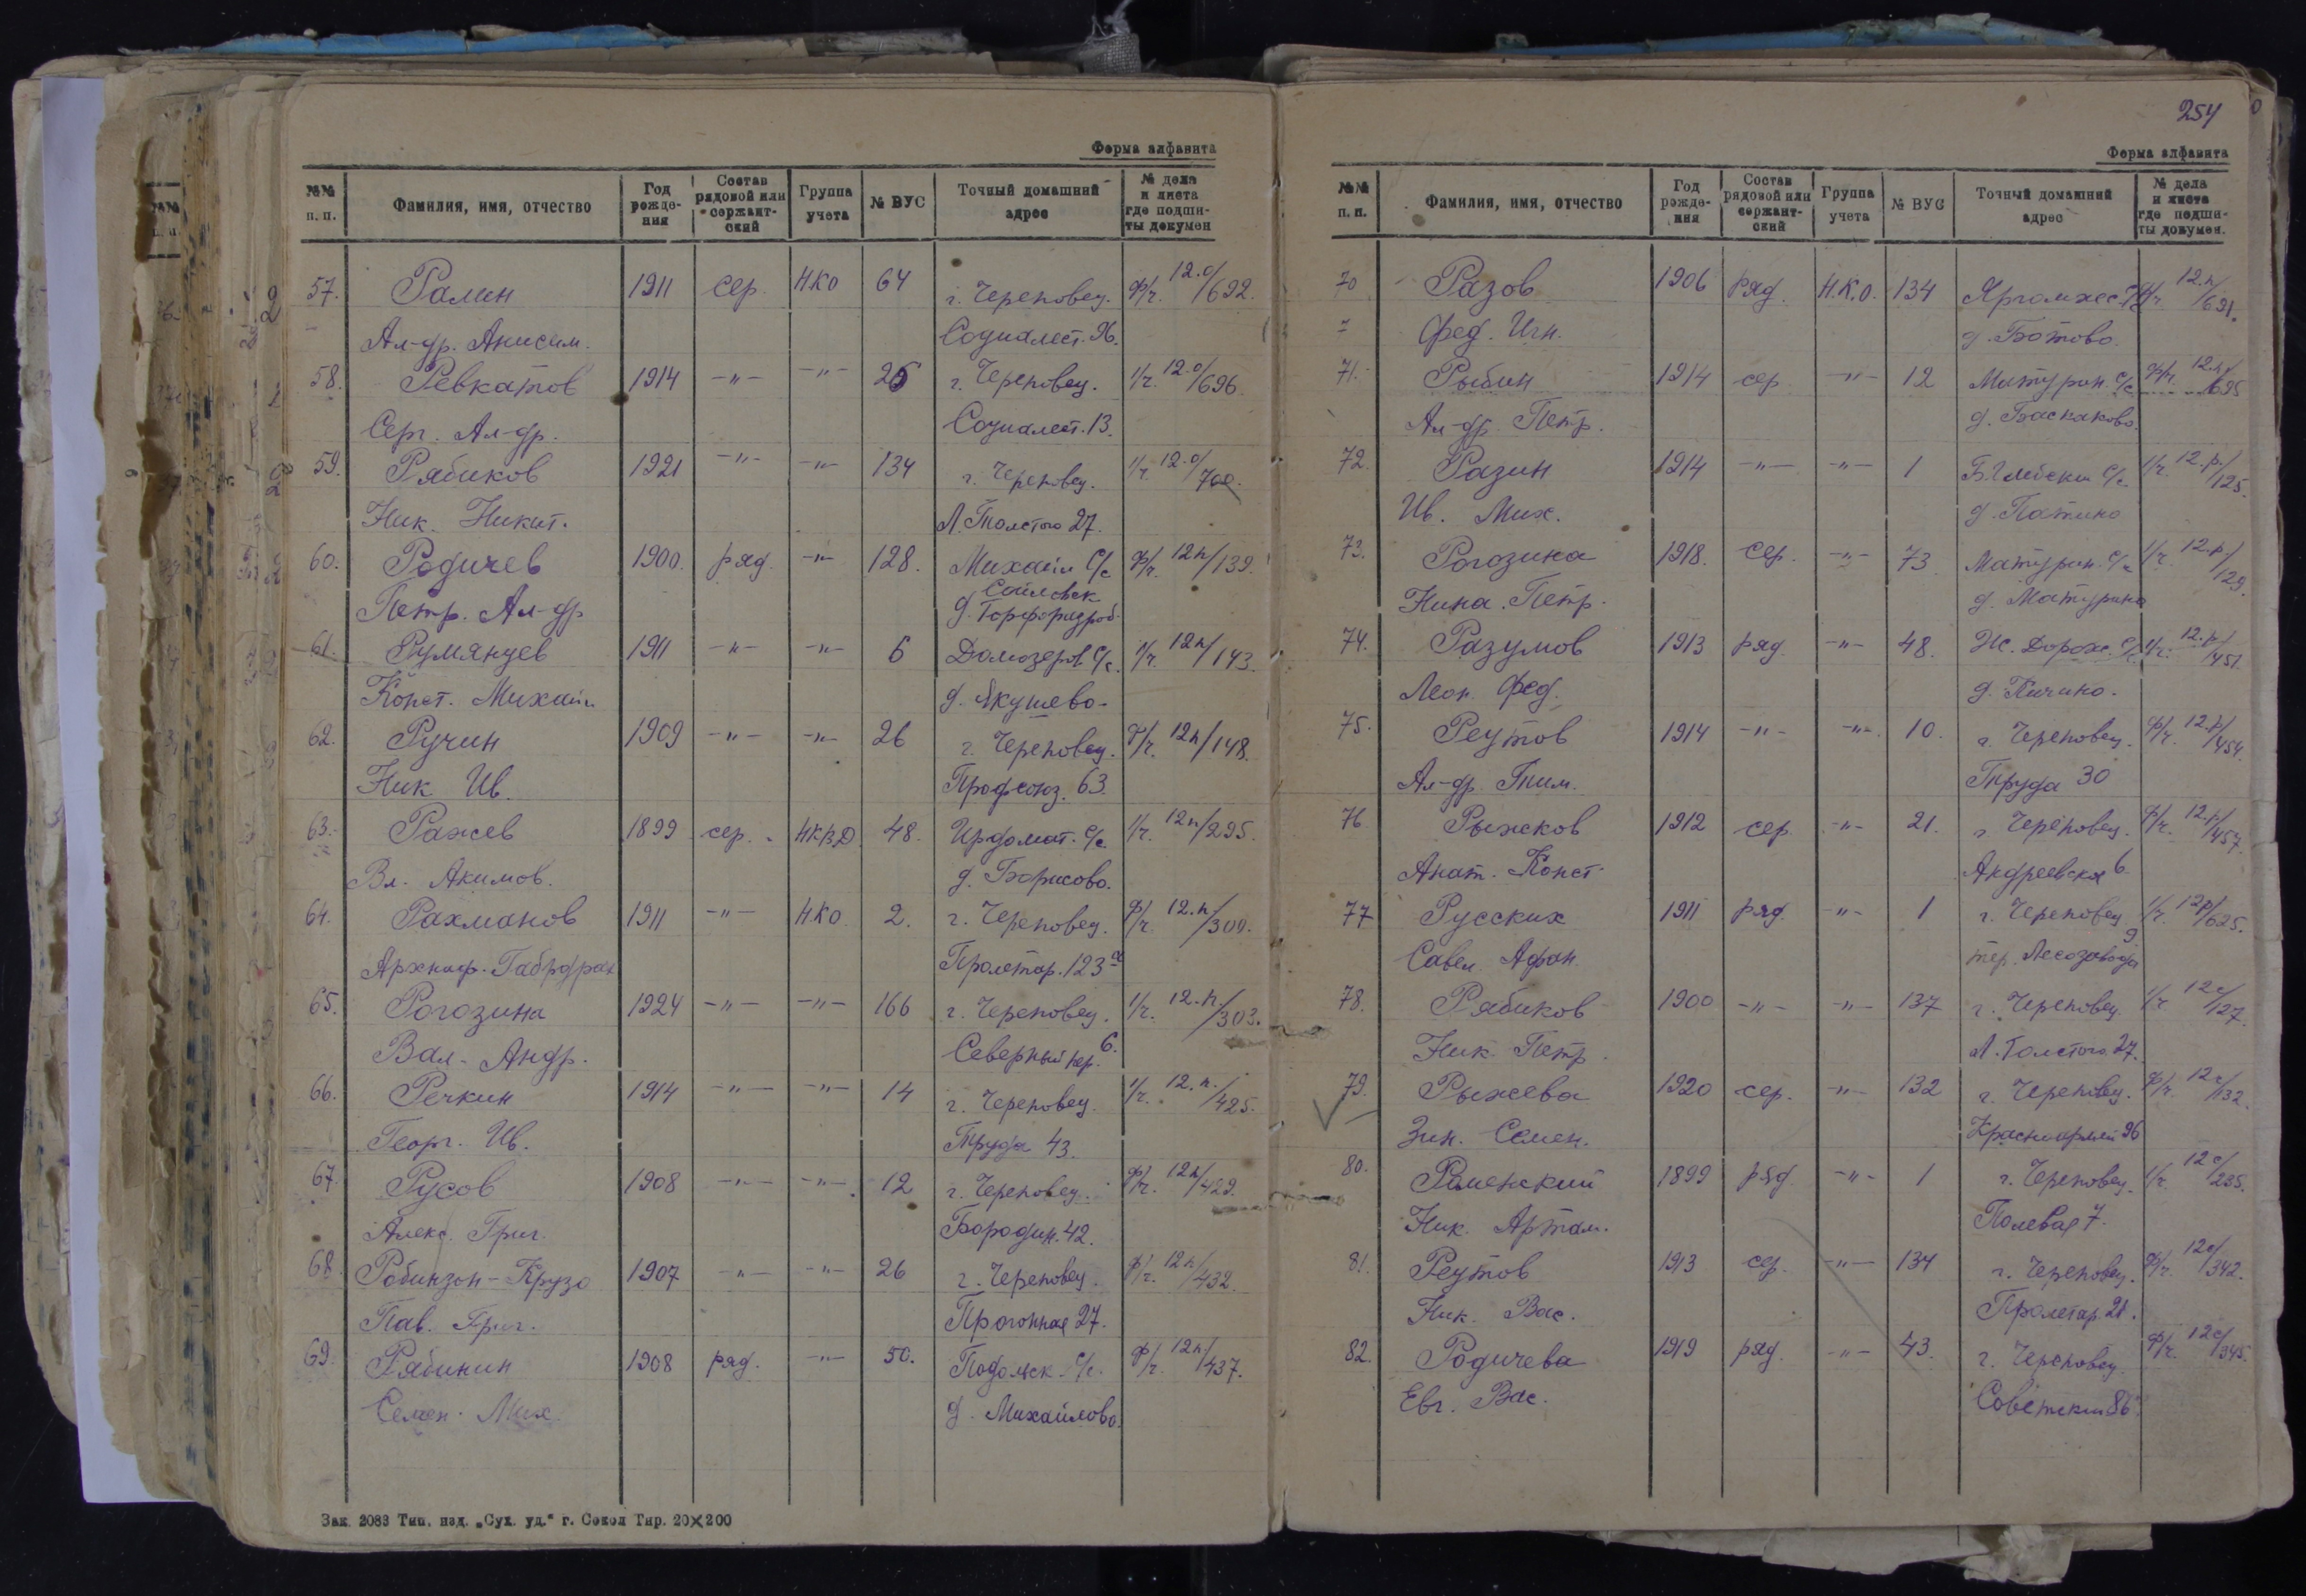 Форма алфавита
№№ п. п. Фамилия, имя, отчество Год рожде- ния Состав рядовой или сержант- ский Группа учета № ВУС Точный домашний адрес № дела и листа где подши- ты докумен
57. Ралин 1911 сер. НКО 64 г. Череповец. ф/г. 12.о/692.
Ал-др. Анисим. Социалест. 96.
58. Ревкатов 1914 -"- -"- 26 г. Череповец. ч/г. 12.о/696
Серг. Ал-др. Социалест. 13.
59. Рябиков 1921 -"- -"- 134 г. Череповец. ч/г. 12.о/700.
Ник. Никит. Л. Толстого 27.
60. Родичев 1900. ряд. -"- 128. Михайл С/с ф/г. 12п/139.
Петр. Ал-др д. Торфоразроб.
61. Румянцев 1911 -"- -"- 6 Домозеров. С/с. ч/г. 12п/143.
Конст. Михайл д. Якушево-
62. Ручин 1909 -"- -"- 26 г. Череповец. ф/г. 12п/148.
Ник Ив. Профсоюз. 63.
63. Ражев 1899 сер. НКВД 48. Ирдомат. С/с. ч/г. 12п/295.
Вл. Акимов. д. Борисово.
64. Рахманов 1911 -"- НКО 2. г. Череповец. ф/г. 12.п/300.
Пролетар. 123а
65. Рогозина 1924 -"- -"- 166 г. Череповец. ч/г. 12.п./303.
Вал. Андр. Северный пер. 6.
66. Речкин 1914 -"- -"- 14 г. Череповец. ч/г. 12.п./425.
Георг. Ив. Труда 43.
67. Русов 1908 -"- -"- 12 г. Череповец. ф/г. 12п/429.
Алекс. Григ. Бородин. 42.
68. Робинзон-Крузо 1907 -"- -"- 26 г. Череповец. ф/г. 12п/432.
Пав. Григ. Прогонная 27.
69. Рябинин 1908 ряд. -"- 50. Подольск. С/с. ф/г. 12п/437.
Семен. Мих. д. Михайлово.
Зак. 2083 Тип. изд. „Сух. уд.“ г. Сокол Тир. 20×200
254
Форма алфавита
№№ п. п. Фамилия, имя, отчество Год рожде- ния Состав рядовой или сержант- ский Группа учета № ВУС Точный домашний адрес № дела и листа где подши- ты докумен.
70 Разов 1906 ряд. Н.К.О. 134 Яргомжс. С/с ф/г. 12.п/691.
Фед. Игн. д. Ботово.
71. Рыбин 1914 сер. -"- 12 Матурин. С/с ф/г. 12.п/695
Ал-др. Петр. д. Баскаково.
72. Разин 1914 -"- -"- 1 С/с ч/г. 12.р./125.
Ив. Мих. д. Патино
73. Рогозина 1918. Сер. -"- 73. Матурин. С/с ч/г. 12.р/129.
Нина. Петр. д. Матурино
74. Разумов 1913 ряд. -"- 48. Ж. Дорож. С/с ч/г. 12.р/451.
Леон. Фед. д. Пичино.
75. Реутов 1914 -"- -"- 10. г. Череповец. ф/г. 12.р/454.
Ал-др. Тим. Труда 30
76 Рыжков 1912 сер. -"- 21. г. Череповец. ф/г. 12.р/457.
Анат. Конст. Андреевская 6.
77 Русских 1911 ряд. -"- 1 г. Череповец ч/г. 12р/625.
Савел. Афан. тер. Лесозавода 9
78. Рябиков 1900 -"- -"- 137 г. Череповец. ч/г 12с/127.
Ник. Петр. Л. Толстого. 27.
79. Рыжева 1920 сер. -"- 132 г. Череповец. ф/г. 12с/132.
Зин. Семен. Красноармей 96
80. Раменский 1899 ряд. -"- 1 г. Череповец. ч/г. 12с/235.
Ник. Артам. Полевая 7.
81. Реутов 1913 сер. -"- 134 г. Череповец. ф/г. 12с/342.
Ник. Вас. Пролетар. 21.
82. Родичева 1919 ряд. -"- 43. г. Череповец. ф/г. 12с/345.
Евг. Вас. Советский 86.